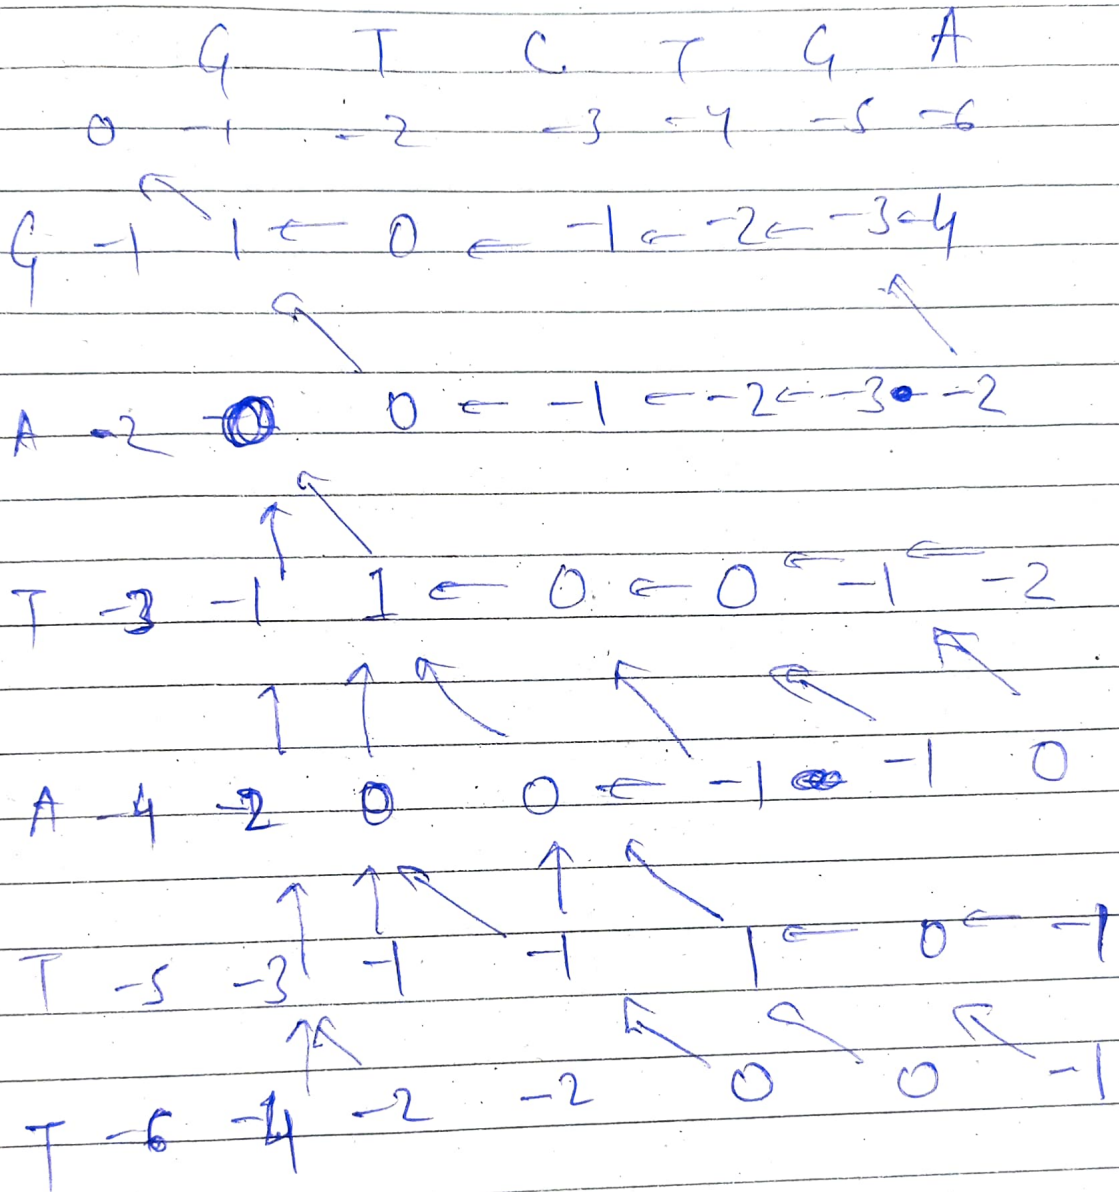 G T C T G A
0 -1 -2 -3 -4 -5 -6
G -1 1 ← 0 ← -1 ← -2 ← -3 ← -4
A -2 0 0 ← -1 ← -2 ← -3 -2
T -3 -1 1 ← 0 ← 0 ← -1 ← -2
A -4 -2 0 0 ← -1 -1 0
T -5 -3 -1 -1 1 ← 0 ← -1
T -6 -4 -2 -2 0 0 -1